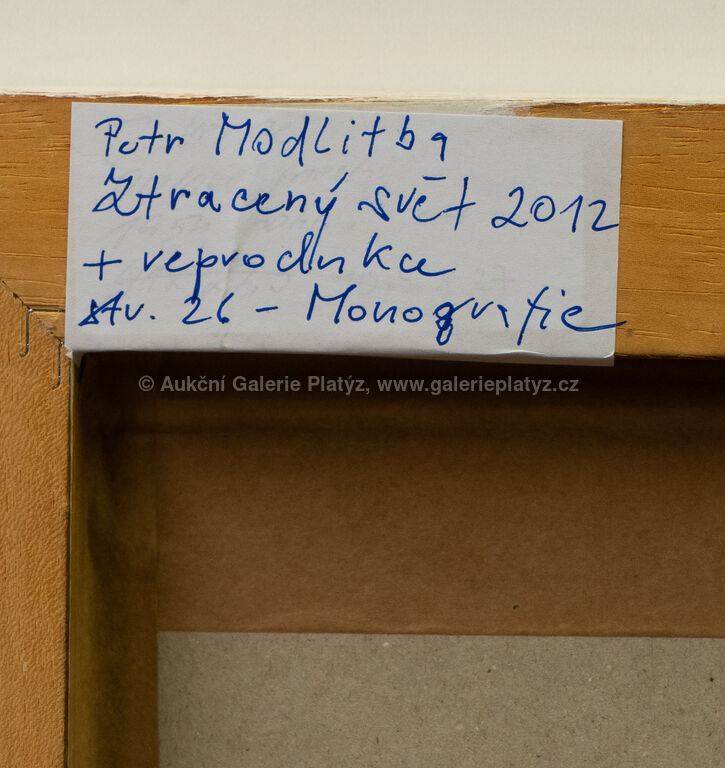 Petr Modlitba
Ztracený svět 2012
+ reprodukce
str. 26 - Monografie
© Aukční Galerie Platýz, www.galerieplatyz.cz